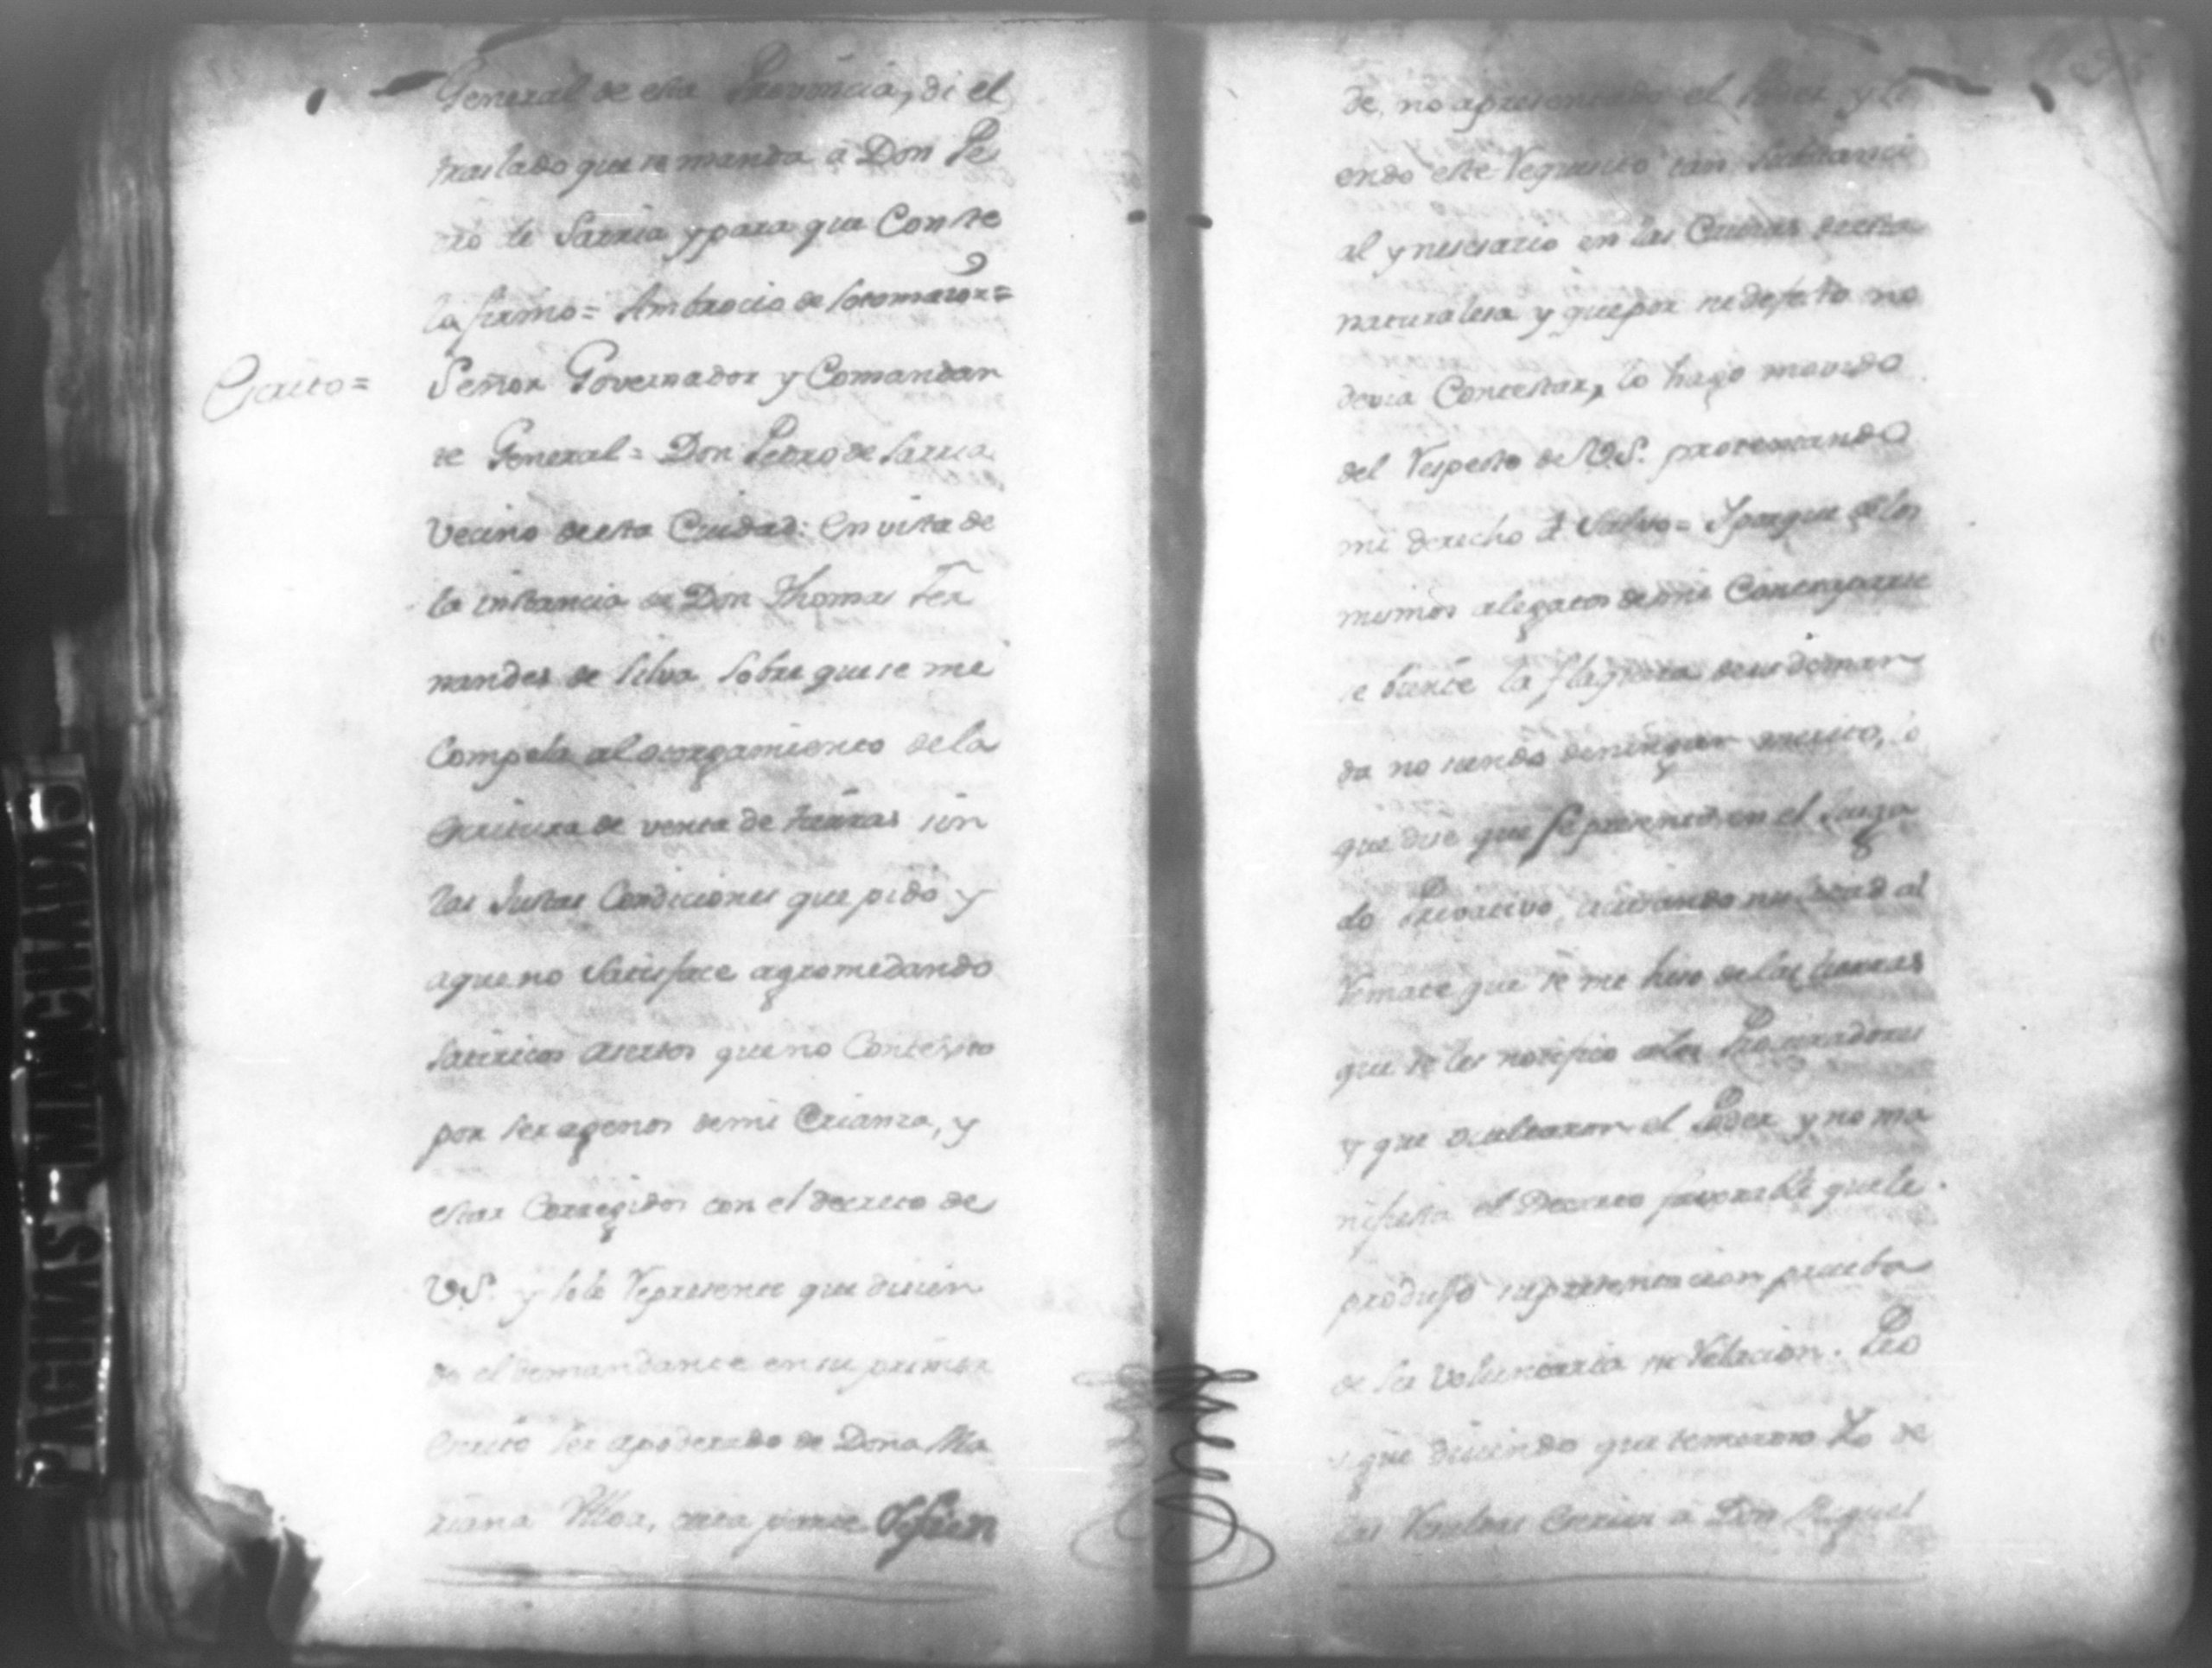 General de esta Provincia, di el
traslado que se manda á Don Pe
dro de Sarria y para que Conste
lo firmo = Ambrocio de Sotomaior =
Escrito =
Señor Governador y Comandan
te General = Don Pedro de Sarria
Vecino de esta Ciudad: en vista de
la instancia de Don Thomas Fer
nandes de Silva sobre que se me
Compela al otorgamiento de la
escritura de venta de tierras sin
las Justas Condiciones que pido y
a que no satisface agromedando
satiricos asertos que no Contesto
por ser agenos de mi Crianza, y
estar Corregidos con el decreto de
VS. y solo Represente que disien
do el demandante en su primer
escrito ser apoderado de Doña Ma
riana Ulloa, cuia parte defien
de, no apresentado el Poder y si
endo este requisito tan substanci
al y nesesario en las Causas de esta
naturalesa y que por su defecto no
devia Contestar, lo hago movido
del Respecto de VS. protestando
mi derecho á salvo = Y porque de los
mismos alegatos de mi Contraparte
se biente la flaquesa de su deman
da no siendo de ningun merito, lo
que dise que se presentó en el Jusga
do Privativo, acusando nulidad al
Remate que se me hiso de las tierras
que se les notifico a los Procuradores
y que ocultaron el Poder y no ma
nifiesta el Decreto favorable que le
produjo su presentacion prueba
de ser voluntaria su Relacion. Pro
sigue disiendo que temeroso Yo de
las Resultas Escrivi á Don Miguel
PAGINAS MANCHADAS